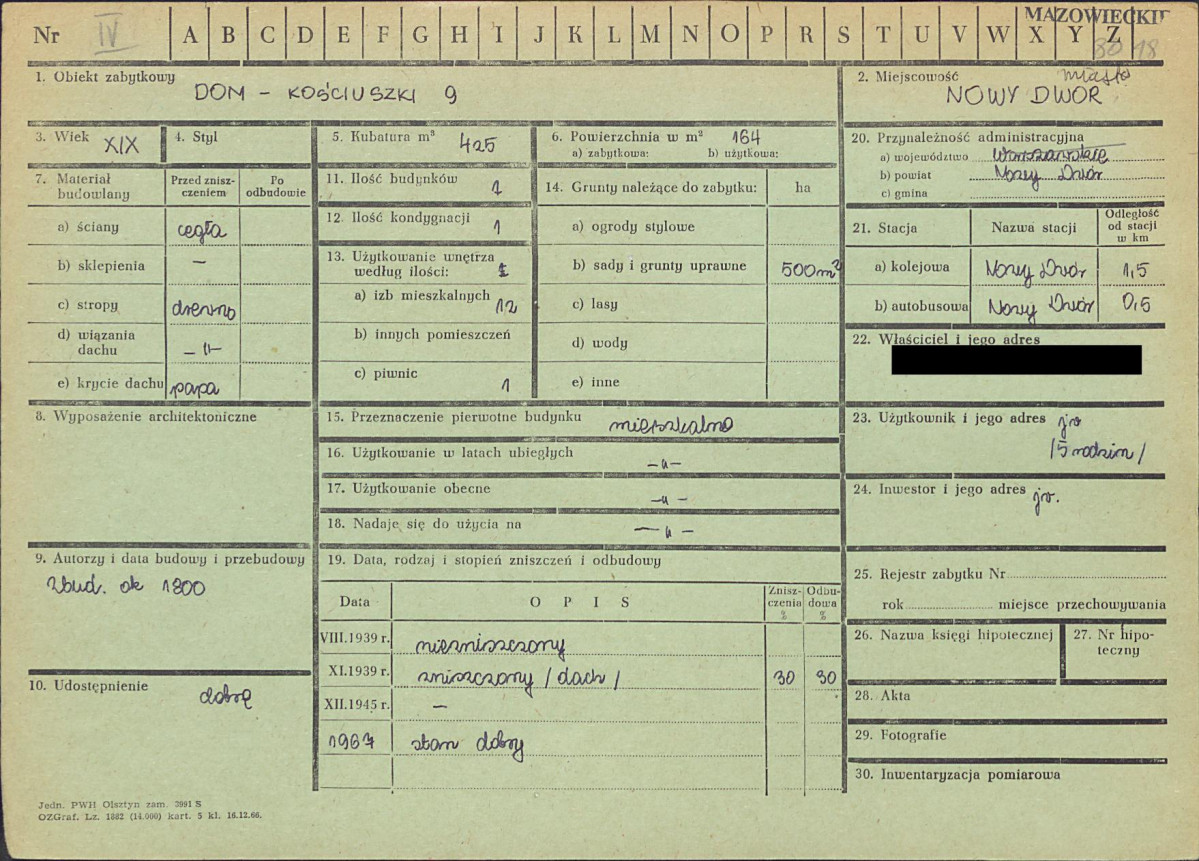 MAZOWIECKIE
Nr IV A B C D E F G H I J K L M N O P R S T U V W X Y Z
80 18
1. Obiekt zabytkowy
DOM – KOŚCIUSZKI 9
2. Miejscowość miasto
NOWY DWÓR
3. Wiek XIX
4. Styl
5. Kubatura m³ 425
6. Powierzchnia w m² 164
a) zabytkowa: b) użytkowa:
20. Przynależność administracyjna
a) województwo Warszawskie
b) powiat Nowy Dwór
c) gmina
7. Materiał budowlany
Przed zniszczeniem
Po odbudowie
a) ściany cegła
b) sklepienia –
c) stropy drewno
d) wiązania dachu –"–
e) krycie dachu papa
11. Ilość budynków 1
12. Ilość kondygnacji 1
13. Użytkowanie wnętrza
według ilości: 1
a) izb mieszkalnych 12
b) innych pomieszczeń
c) piwnic 1
14. Grunty należące do zabytku: ha
a) ogrody stylowe
b) sady i grunty uprawne 500m²
c) lasy
d) wody
e) inne
21. Stacja
Nazwa stacji
Odległość od stacji w km
a) kolejowa Nowy Dwór 1,5
b) autobusowa Nowy Dwór 0,5
22. Właściciel i jego adres
8. Wyposażenie architektoniczne
15. Przeznaczenie pierwotne budynku mieszkalne
16. Użytkowanie w latach ubiegłych –"–
17. Użytkowanie obecne –"–
18. Nadaje się do użycia na –"–
23. Użytkownik i jego adres jw
/5 rodzin/
24. Inwestor i jego adres jw.
9. Autorzy i data budowy i przebudowy
Zbud. ok 1800
19. Data, rodzaj i stopień zniszczeń i odbudowy
Data
O P I S
Zniszczenia %
Odbudowa %
VIII.1939 r. niezniszczony
XI.1939 r. zniszczony /dach/ 30 30
XII.1945 r. –
1967 stan dobry
25. Rejestr zabytku Nr
rok miejsce przechowywania
26. Nazwa księgi hipotecznej
27. Nr hipoteczny
10. Udostępnienie dobre
28. Akta
29. Fotografie
30. Inwentaryzacja pomiarowa
Jedn. PWH Olsztyn zam. 3991 S
OZGraf. Lz. 1882 (14.000) kart. 5 kl. 16.12.66.